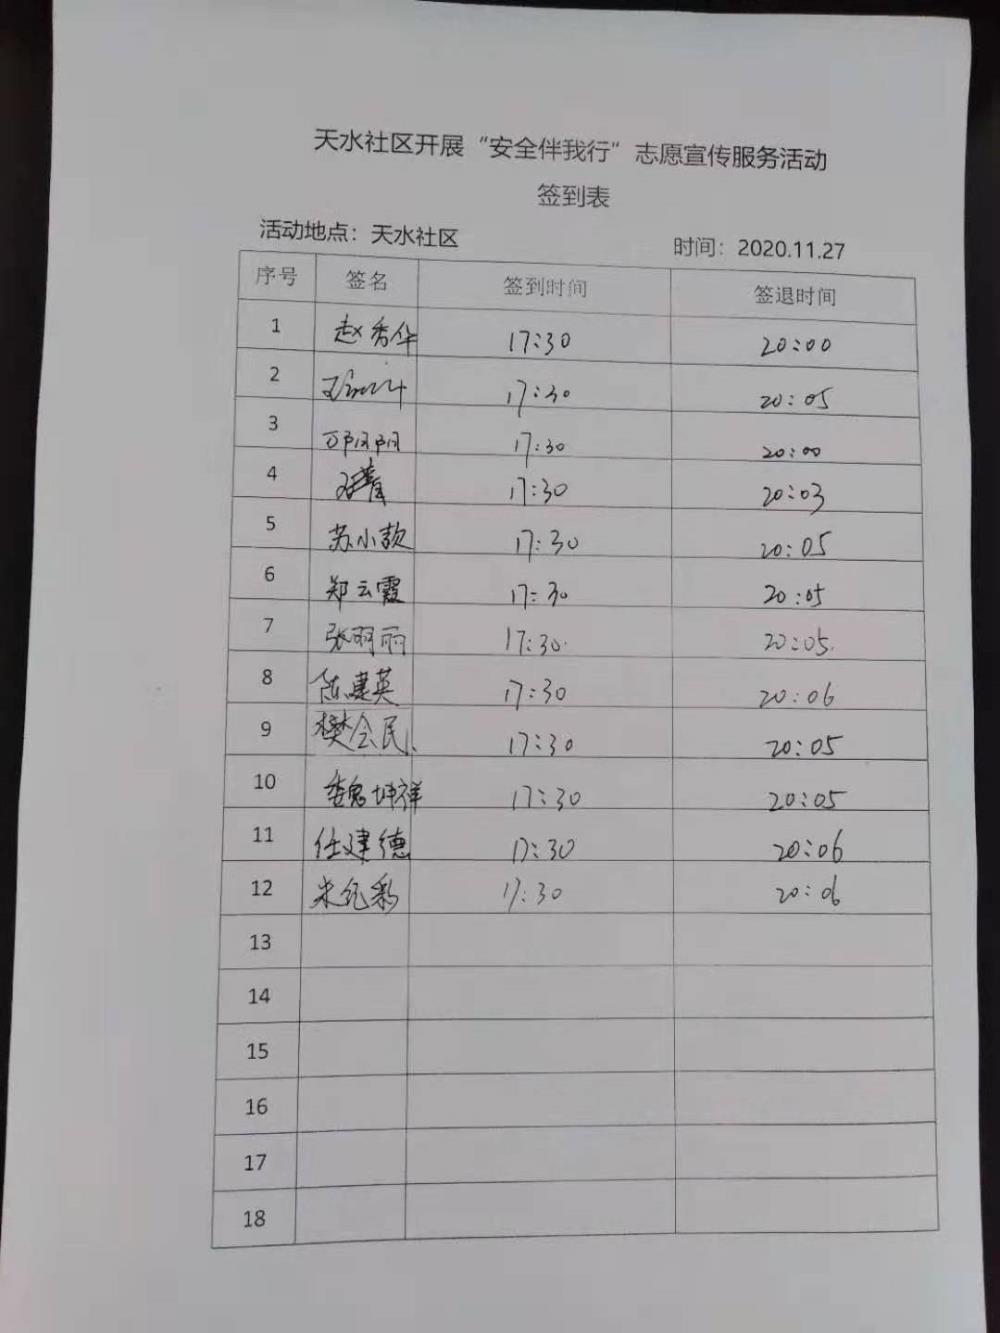 天水社区开展“安全伴我行”志愿宣传服务活动
签到表
活动地点：天水社区 时间：2020.11.27
序号 签名 签到时间 签退时间
1 赵秀华 17:30 20:00
2 17:30 20:05
3 邓阳阳 17:30 20:00
4 17:30 20:03
5 苏小款 17:30 20:05
6 郑云霞 17:30 20:05
7 张丽 17:30 20:05
8 陈建英 17:30 20:06
9 樊会民 17:30 20:05
10 魏坤祥 17:30 20:05
11 任建德 17:30 20:06
12 米纪彩 17:30 20:06
13
14
15
16
17
18